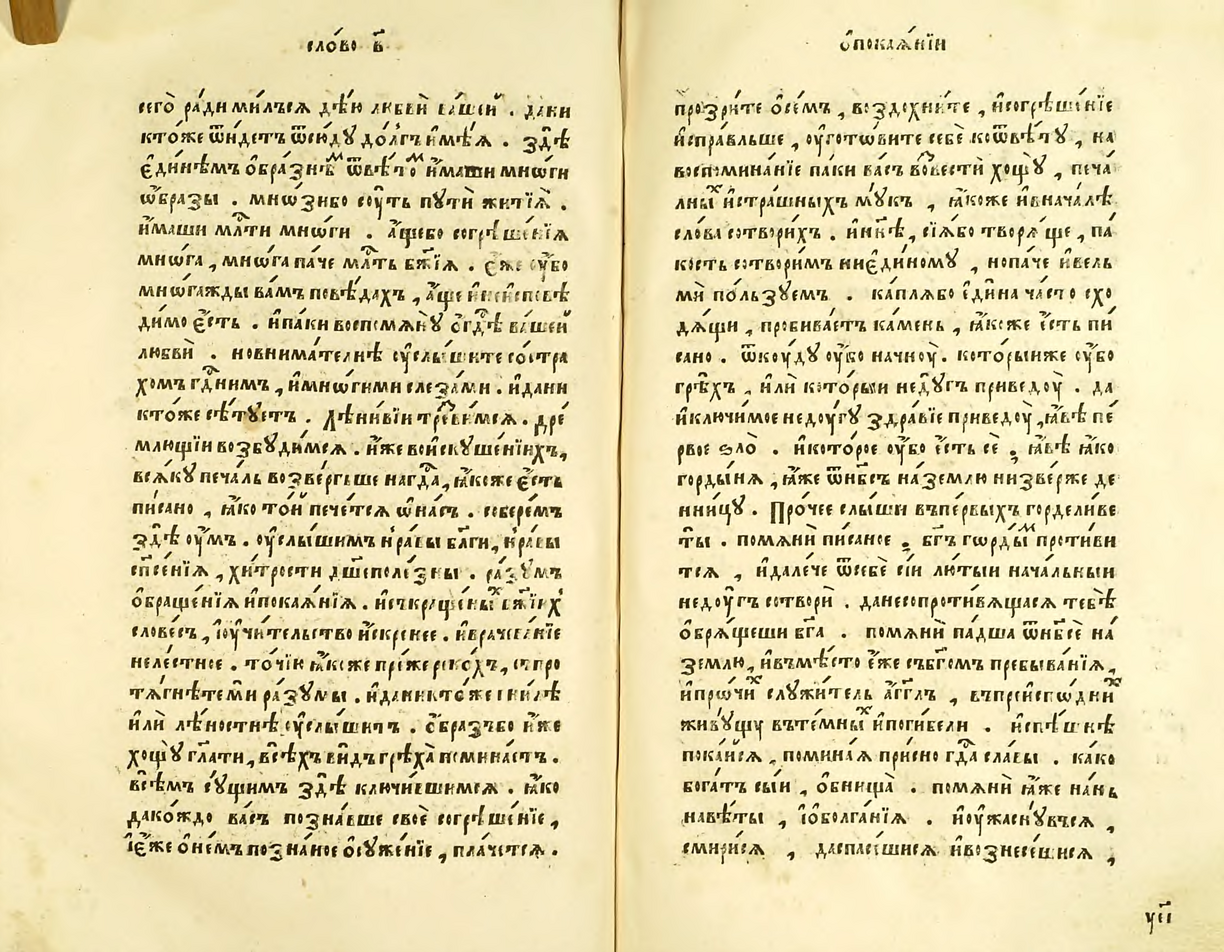 сло́во в҃
сего̀ ра́ди ми́лъсѧ дѣ́ю любвѝ ва́шеи . да ни
кто́же ѿи́детъ ѿсю́дꙋ до́лгъ имѣ́ѧ . здѣ̀
є҆ди́нѣмъ о҆́бразнѣⷨ ѿвѣ́тоⷨ и҆́маши мнѡ́ги
ѡ҆́бразы . мнѡ́зи бо сꙋ́ть пꙋтѝ житїѧ̀ .
и҆́маши млⷭ҇ти мнѡ́ги . а҆́ще бо согрѣше́нїѧ
мнѡ́га , мнѡ́га па́че млⷭ҇ть бж҃їѧ . є҆́же ᲂу҆́бо
мнѡ́гажды ва́мъ повѣ́дахъ , а҆́ще и҆ неисповѣ́
димо є҆́сть . и҆ па́ки воспомѧнꙋ̀ ѻ҆ гдⷭ҇ѣ ва́шей
любвѝ . но внима́телнѣ ᲂу҆слы́шите со стра́
хомъ гдⷭ҇нимъ , и҆ мнѡ́гими слеза́ми . и҆ да ни
кто́же сѣ́тꙋетъ . лѣни́вїи тре́звимсѧ . дре́
млющїи возбꙋ́димсѧ . и҆́же во и҆скꙋше́нїихъ,
всѧ́кꙋ печа́ль возве́ргъше на гдⷭ҇а , ꙗ҆́коже є҆́сть
писано , ꙗ҆́ко то́и пече́тсѧ ѡ҆ на́съ . собере́мъ
здѣ̀ ᲂу҆́мъ . ᲂу҆слы́шимъ нра́вы бл҃ги , нра́вы
сп҃се́нїѧ , хи́трости дш҃еполе́зны . ра́зꙋмъ
ѡ҆браще́нїѧ и҆ покаѧ́нїѧ .
слове́съ , и҆ ᲂу҆чи́тельство и҆́скренее . и҆ врачева́нїе
неле́стное . то́чїю ꙗ҆́коже пре́же реко́хъ , спро
тѧгнѣ́те ми̑ ра́зꙋмы .
и҆лѝ лѣ́ностнѣ ᲂу҆слы́шитъ . ѻ҆́бразъ бо и҆́же
хощꙋ̀ гл҃ати , всѣ́хъ ви́дъ грѣха̀ помина́етъ .
всѣ́мъ сꙋ́щимъ здѣ̀ ключи́вшимсѧ . ꙗ҆́ко
да ко́ждо ва́съ позна́вше своѐ согрѣше́нїе ,
и҆ є҆́же ѻ҆ не́мъ позна́ное ѻ҆сꙋже́нїе , пла́четсѧ .
ѻ҆ покаѧ́нїи
прозри́те ѻ҆ се́мъ , воздохнѣ́те , и҆ согрѣше́нїе
и҆спра́вльше , ᲂу҆гото́вите себѐ ко ѿвѣ́тꙋ , на
воспомина́нїе па́ки ва́съ вовестѝ хощꙋ̀ , печа́
лныⷯ и҆ стра́шныхъ мꙋ́къ , ꙗ҆́коже и҆ внача́лѣ
сло́ва сотвори́хъ . и҆ ны́нѣ , сїѧ́ бо творѧ́ще , па́
кость сотвори́мъ ни є҆ди́номꙋ , но па́че и҆ вель
мѝ по́льзꙋемъ . ка́плѧ бо є҆ди́на ча́сто схо
дѧ́щи , пробива́етъ ка́мень , ꙗ҆́коже є҆́сть пи́
сано . ѿкꙋ́дꙋ ᲂу҆́бо начнꙋ̀ . кото́рыи же ᲂу҆́бо
грѣ́хъ , и҆лѝ кото́рыи недꙋ́гъ приведꙋ̀ . да
и҆ ключи́мое недꙋ́гꙋ здра́вїе приведꙋ̀ , ꙗ҆́вѣ пе́
рвое ѕло̀ . и҆ кото́рое ᲂу҆́бо є҆́сть сѐ ; ꙗ҆́вѣ ꙗ҆́ко
горды́нѧ , ꙗ҆́же ѿ нб҃съ на зе́млю низве́рже де
нни́цꙋ . Про́чее слы́ши въ пе́рвыхъ горделиве
ты̀ . помѧнѝ пи́саное ; бг҃ъ го́рдыⷨ проти́ви
тсѧ , и҆ дале́че ѿ себѐ сїѝ лю́тыи нача́льныи
недꙋ́гъ сотворѝ . да не сопроти́вѧщасѧ тебѣ̀
ѻ҆брѧ́щеши бг҃а . помѧнѝ па́дша ѿ нб҃сѐ на
зе́млю , и҆ въмѣ́сто є҆́же съ бг҃омъ пребыва́нїѧ ,
и҆ про́чиⷯ слꙋжи́тель а҆́гг҃лъ , въ преиспо́дниⷯ
живꙋ́щꙋ въ те́мныⷯ и҆ поги́бели . и҆ спѣ́шнѣ
пока́йсѧ , помина́ѧ при́сно гдⷭ҇а сла́вы . ка́ко
бога́тъ сы́и , ѻ҆бнища̀ . помѧнѝ ꙗ҆́же на́нь
навѣ́ты , и҆ ѻ҆болга́нїѧ . и҆ ᲂу҆жаснꙋ́всѧ ,
смири́сѧ , да спасе́шисѧ и҆ вознесе́шисѧ ,